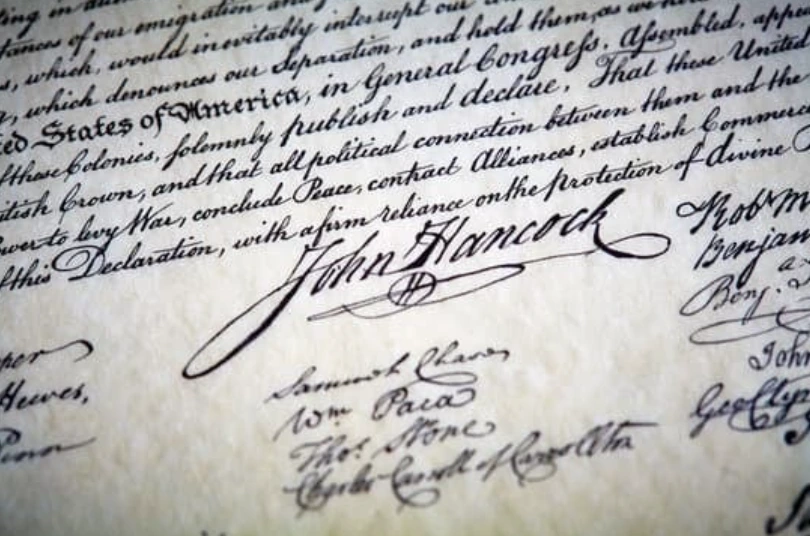 tances of our emigration and
s, which, would inevitably interrupt our
, which denounces our Separation, and hold them, as we
ed States of America, in General Congress, Assembled, appe
f these Colonies, solemnly publish and declare, That these United
itish Crown, and that all political connection between them and the
ower to levy War, conclude Peace, contract Alliances, establish Commerc
f this Declaration, with a firm reliance on the Protection of divine P
John Hancock
Rob^t M
Benjam
Benj.
John
Geo Clym
per
Hewes,
Penn
Samuel Chase
W^m Paca
Tho^s Stone
Charles Carroll of Carrollton